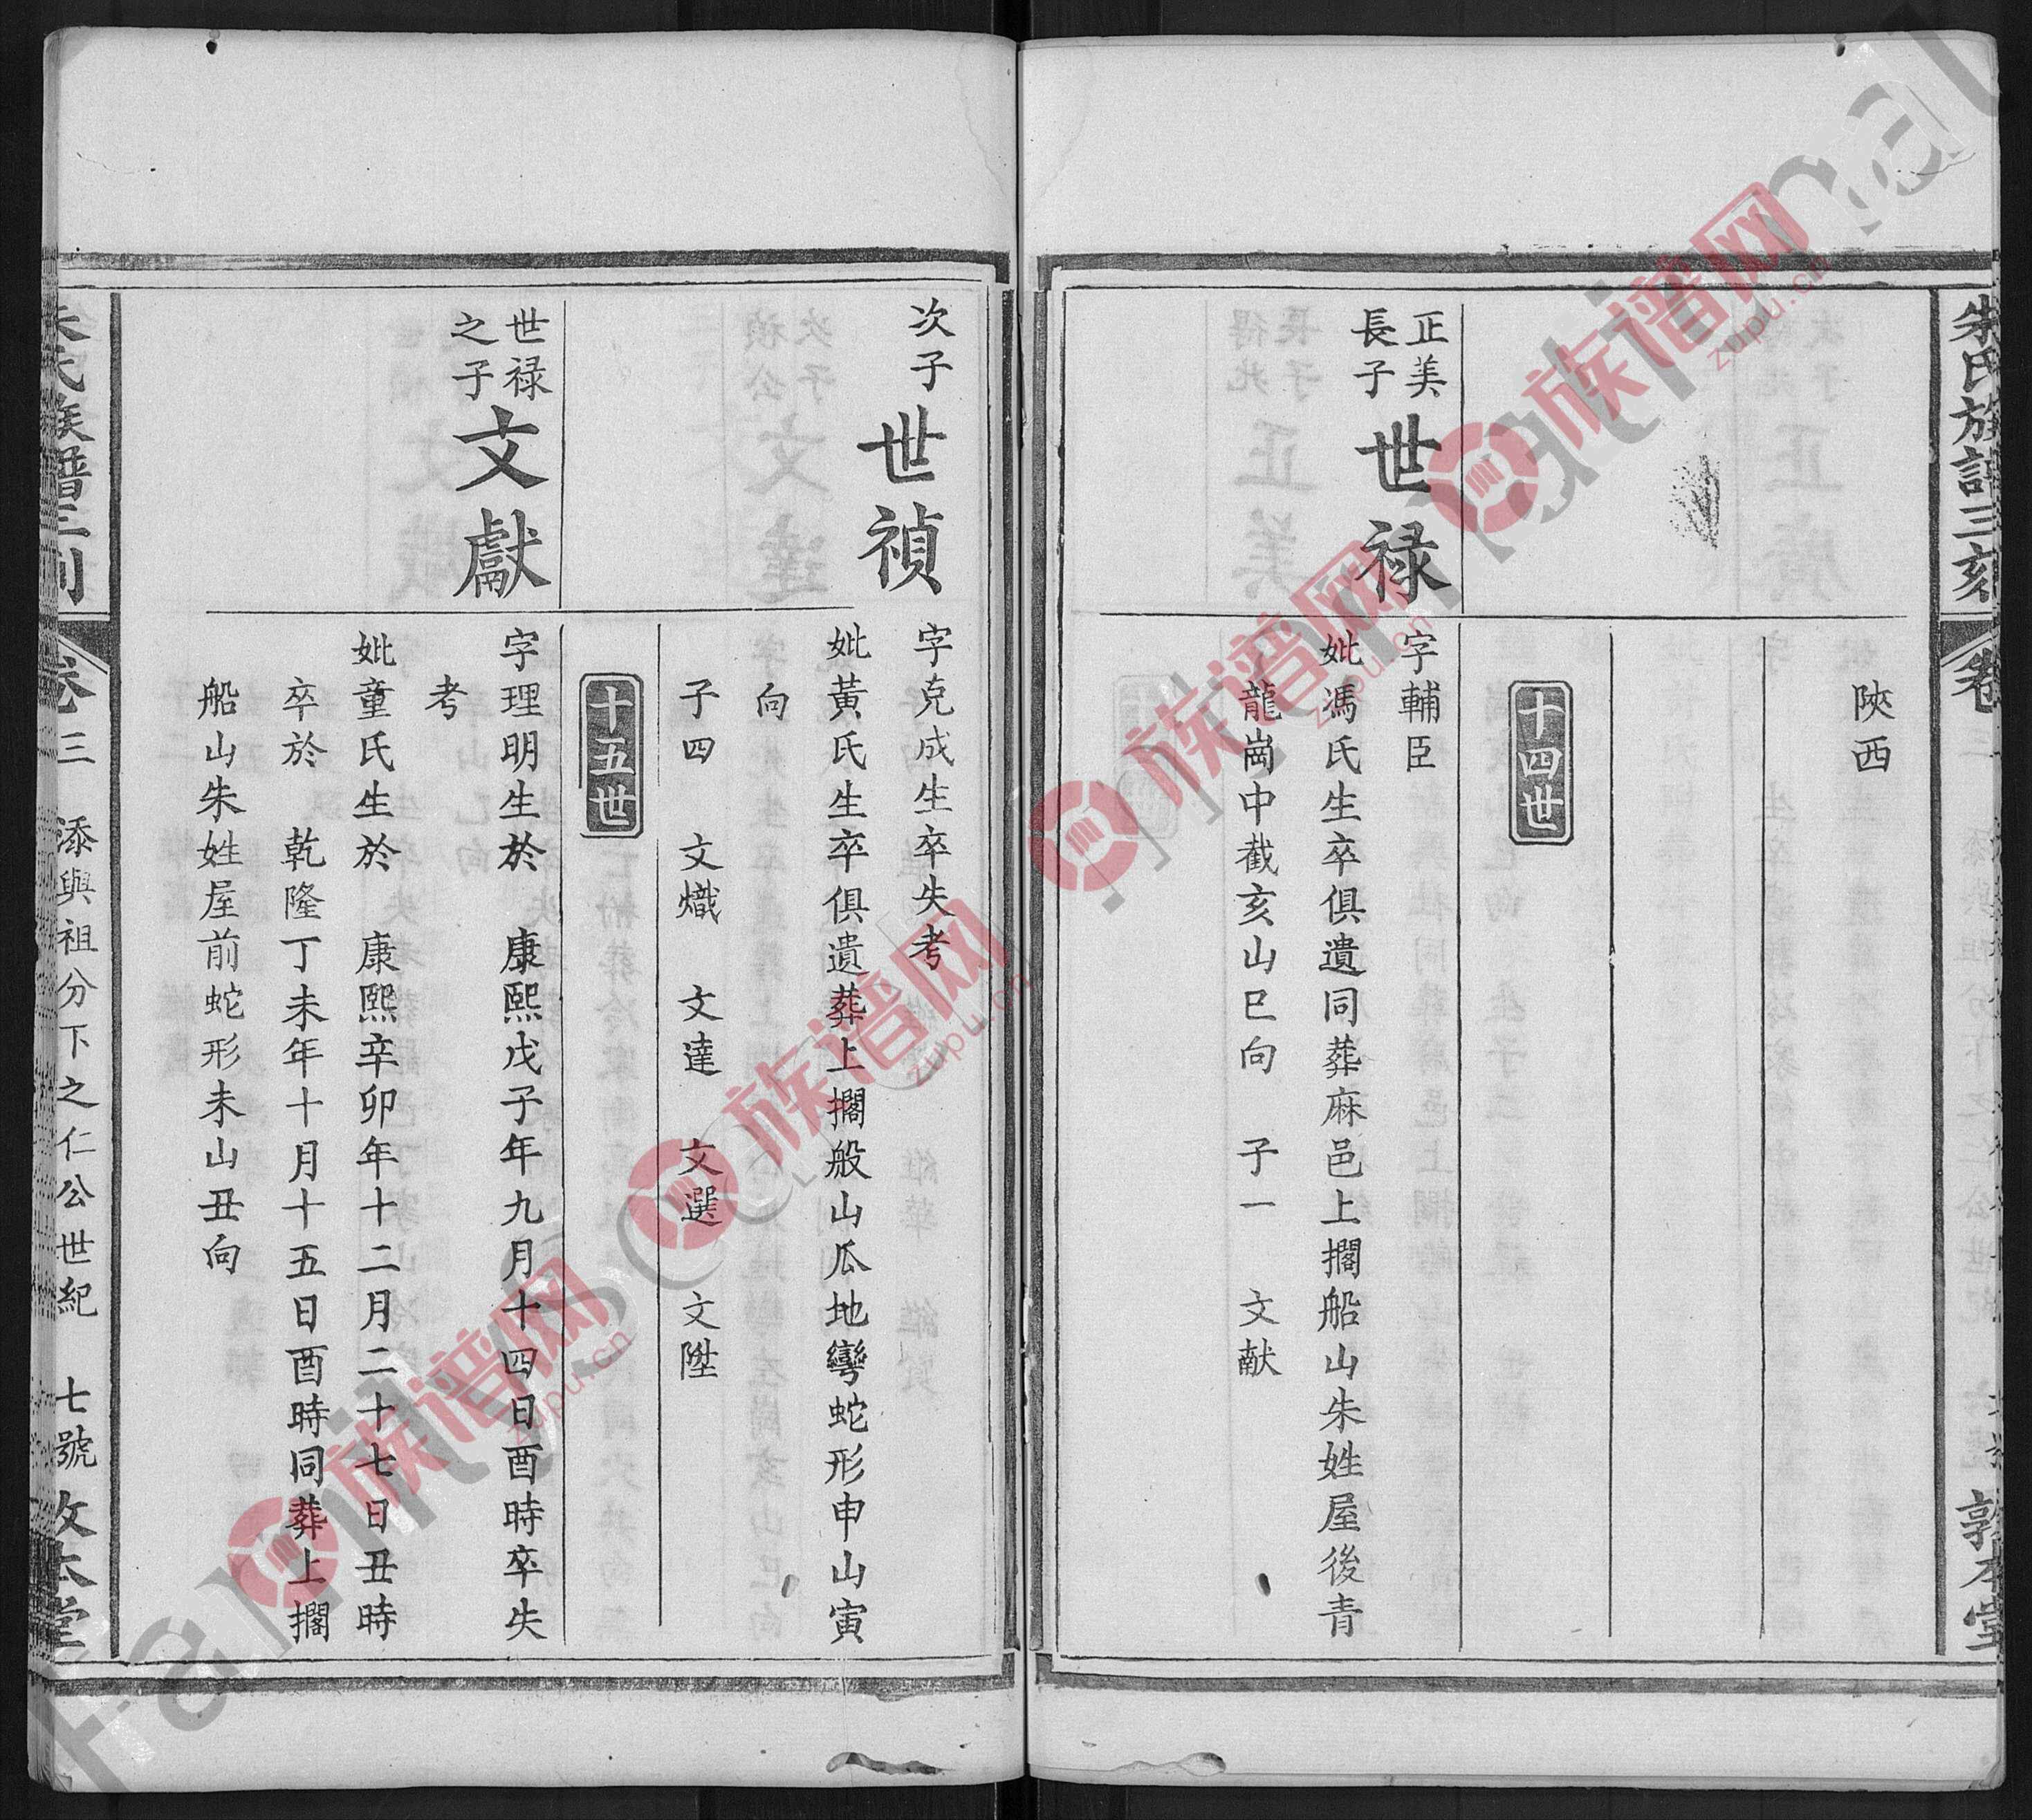 朱氏族譜三刻
卷
敦本堂
陝西
十四世
正美
長子
世祿
字輔臣
妣馮氏生卒俱遺同葬麻邑上擱船山朱姓屋後青
龍崗中截亥山巳向 子一 文献
次子
世禎
字克成生卒失考
妣黃氏生卒俱遺葬上擱般山瓜地彎蛇形申山寅
向
子四 文熾 文達 文選 文陞
十五世
世祿
之子
文獻
字理明生於 康熙戊子年九月十四日酉時卒失
考
妣童氏生於 康熙辛卯年十二月二十七日丑時
卒於 乾隆丁未年十月十五日酉時同葬上擱
船山朱姓屋前蛇形未山丑向
朱氏族譜三刻
卷三 添與祖分下之仁公世紀 七號 敦本堂
族谱网
zupu.cn
族谱网
zupu.cn
族谱网
zupu.cn
族谱网
zupu.cn